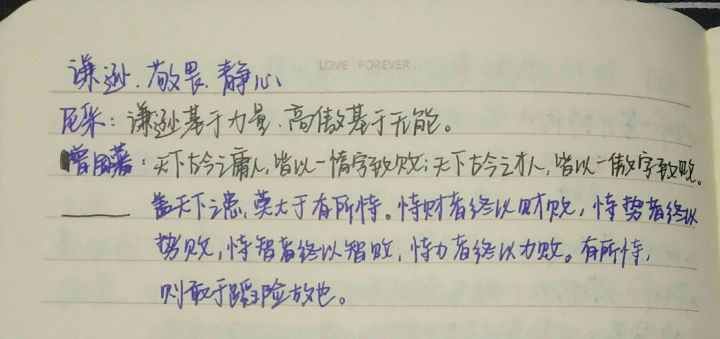 LOVE FOREVER...
谦逊、敬畏、静心
尼采：谦逊基于力量、高傲基于无能。
曾国藩：天下古今之庸人，皆以一惰字致败；天下古今之才人，皆以一傲字致败。
盖天下之患，莫大于有所恃。恃财者终以财败，恃势者终以
势败，恃智者终以智败，恃力者终以力败。有所恃，
则敢于蹈险故也。